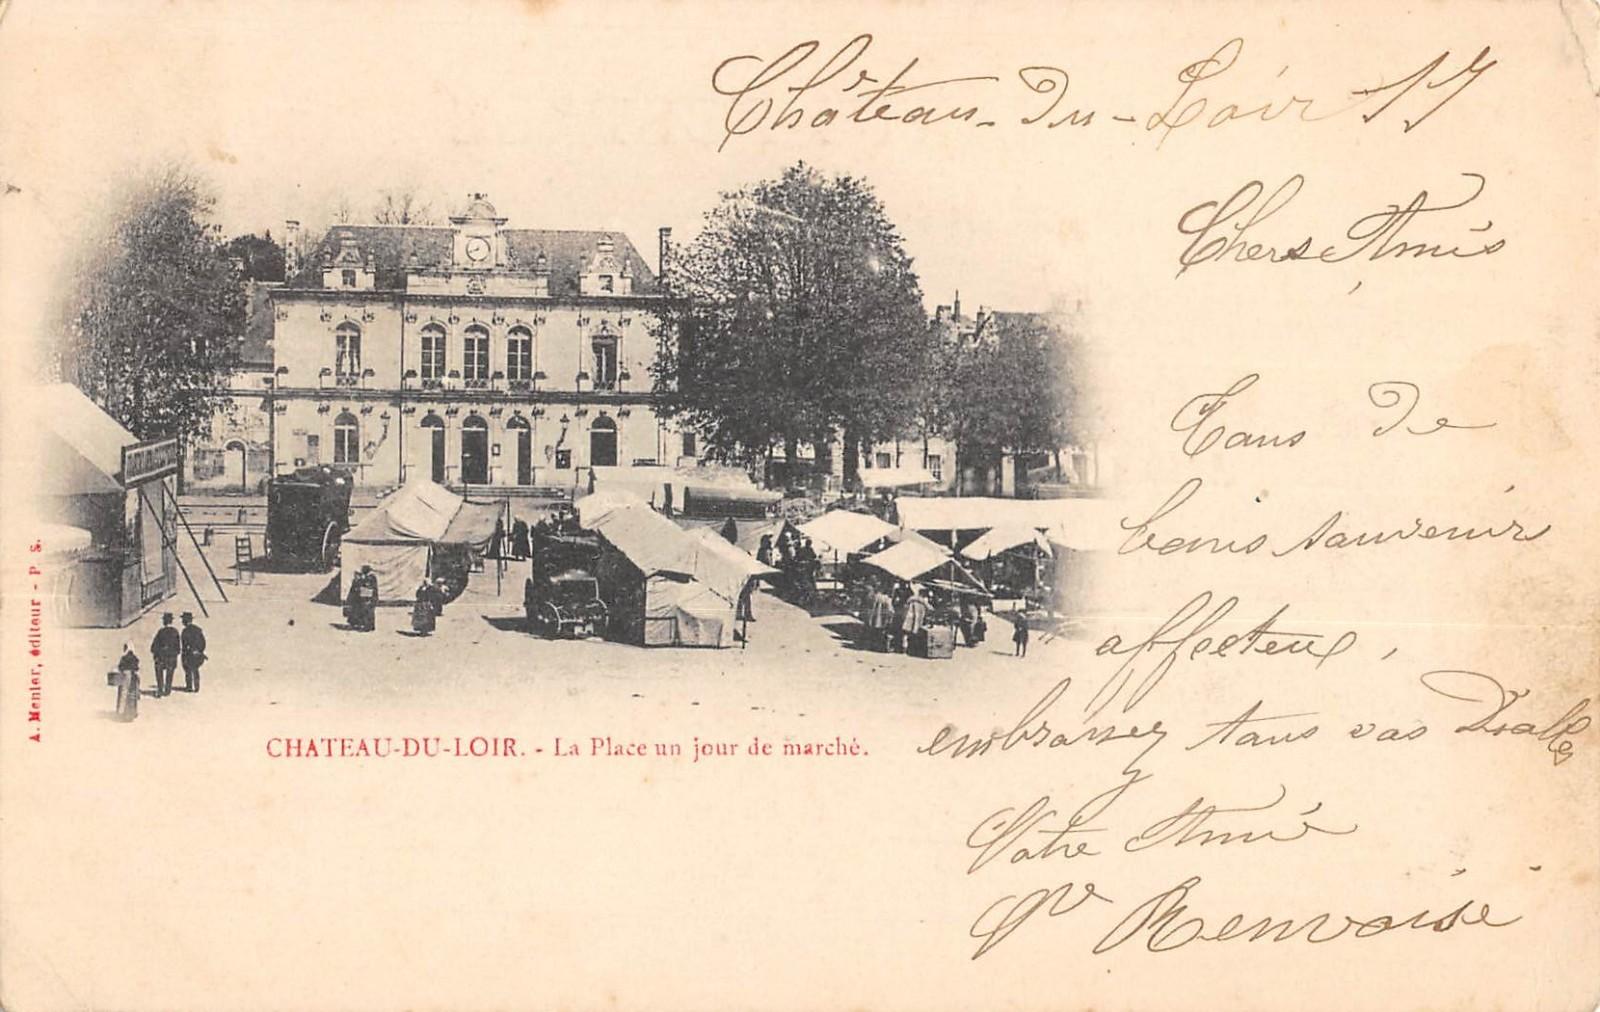 Château-Du-Loir 17
Chers Amis
Tous De
bons souvenir
affecteux,
embrassez tous vos
Votre Amie
Renvoisé
CHATEAU-DU-LOIR. - La Place un jour de marché.
A. Menier, éditeur - P S.